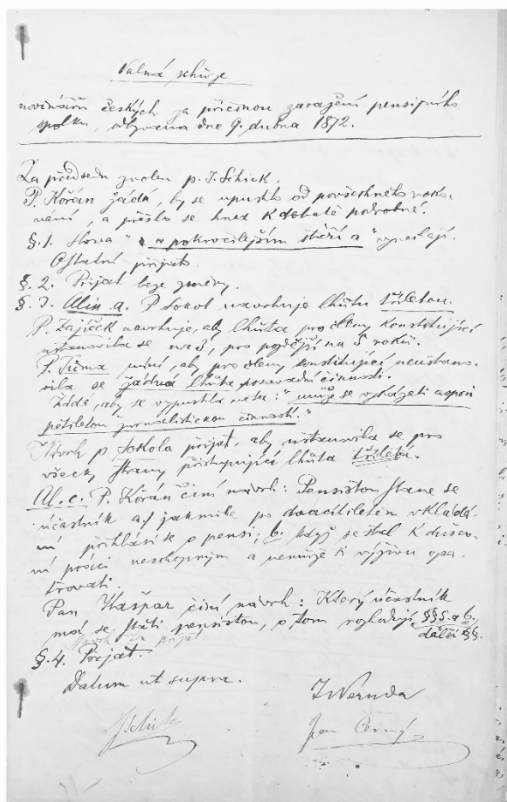 Valná schůze
novinářů českých za příčinou zaražení pensijního
spolku, odbývaná dne 9. dubna 1872.
Za předsedu zvolen p. J. Schick.
P. Kořán žádá, by se upustilo od povšechného roko-
vání, a přešlo se hned k debatě podrobné.
§. 1. Slova " a pokročilejším stáří a " vynechají.
Ostatní přijato.
§. 2. Přijat beze změny.
§. 3. Alin. a. P. Sokol navrhuje lhůtu tříletou.
P. Zajíček navrhuje, aby lhůta pro členy konstituující
ustanovila se na 3, pro pozdější na 5 roků.
P. Tůma míní, aby pro členy konstituující neustano-
vila se žádná lhůta posavadní činnosti.
Žádá, aby se vypustila věta: "může se vykázati aspoň
pětiletou žurnalistickou činností."
Návrh p. Sokola přijat, aby ustanovila se pro
všecky strany přistupující lhůta tříletá.
Al. c. P. Kořán činí návrh: Pensistou stane se
účastník a) jakmile po dvacítiletém vkládá-
ní přihlásí se o pensi; b. když se stal k dušev-
ní práci neschopným a nemůže si výživu opa-
trovati.
Pan Kašpar činí návrh: Který účastník
má se státi pensistou, o tom rozhodují §§§. a b.
další §§.
přijat
§. 4. Přijat.
Datum ut supra.
J Neruda
JSchick
Jan Černý